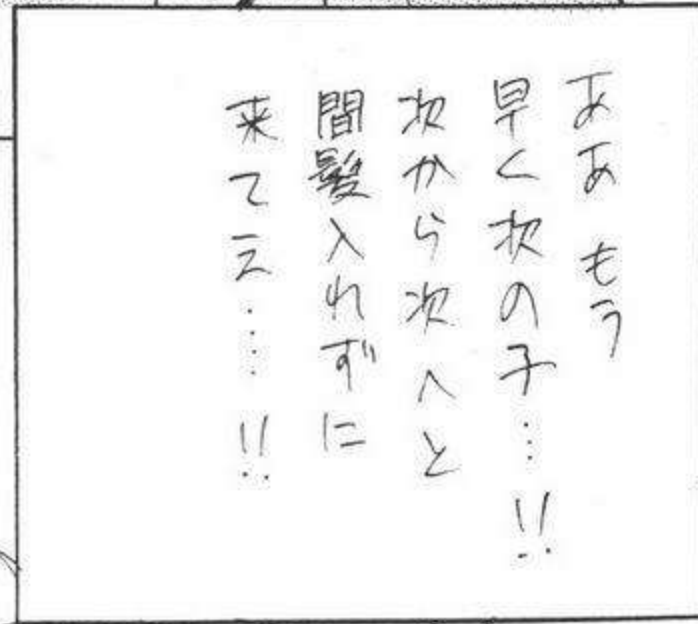 ああ もう
早く次の子…!!
次から次へと
間髪入れずに
来てえ……!!